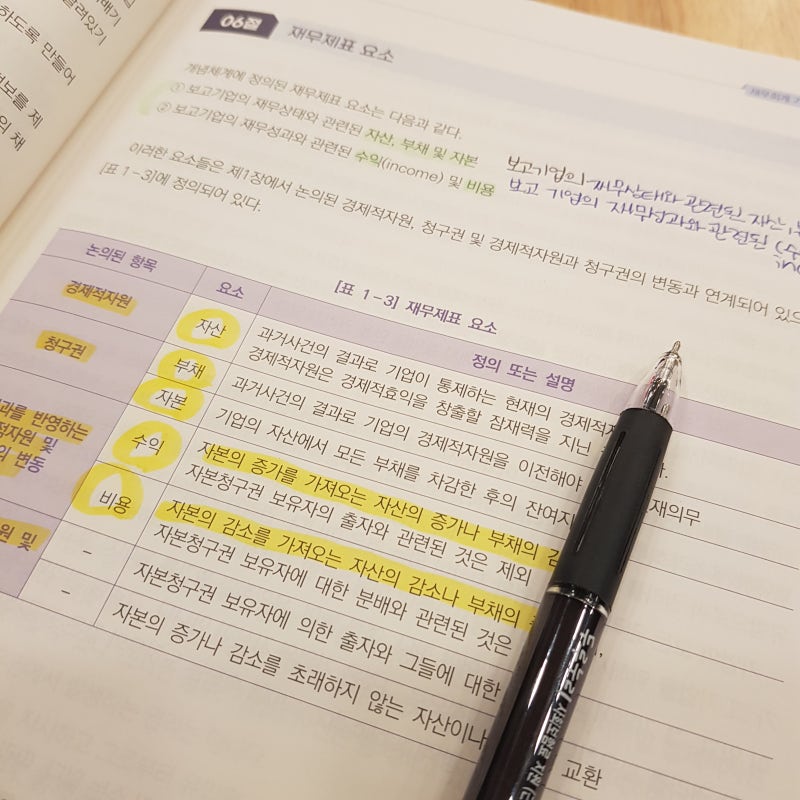 06절 재무제표 요소
개념체계에 정의된 재무제표 요소는 다음과 같다.
① 보고기업의 재무상태와 관련된 자산, 부채 및 자본
② 보고기업의 재무성과와 관련된 수익(income) 및 비용
보고기업의 재무상태와 관련된
보고 기업의 재무성과와 관련된
이러한 요소들은 제1장에서 논의된 경제적자원, 청구권 및 경제적자원과 청구권의 변동과 연계되어 있으
[표 1-3]에 정의되어 있다.
[표 1-3] 재무제표 요소
논의된 항목 요소 정의 또는 설명
경제적자원 자산 과거사건의 결과로 기업이 통제하는 현재의 경제적
경제적자원은 경제적효익을 창출할 잠재력을 지닌
청구권 부채 과거사건의 결과로 기업의 경제적자원을 이전해야
자본 기업의 자산에서 모든 부채를 차감한 후의 잔여지
반영하는
적자원 및
변동
수익 자본의 증가를 가져오는 자산의 증가나 부채의
자본청구권 보유자의 출자와 관련된 것은 제외
비용 자본의 감소를 가져오는 자산의 감소나 부채의
자본청구권 보유자에 대한 분배와 관련된 것은
원 및
– 자본청구권 보유자에 의한 출자와 그들에 대한
– 자본의 증가나 감소를 초래하지 않는 자산이나
교환